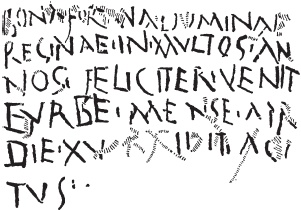 BONA FORTVNA DOMINAE
REGINAE·IN·MVLTOS AN
NOS FELICITER·VENIT
E VRBE·MENSE·APR
DIE·XV VIDIT TACI
TVS·